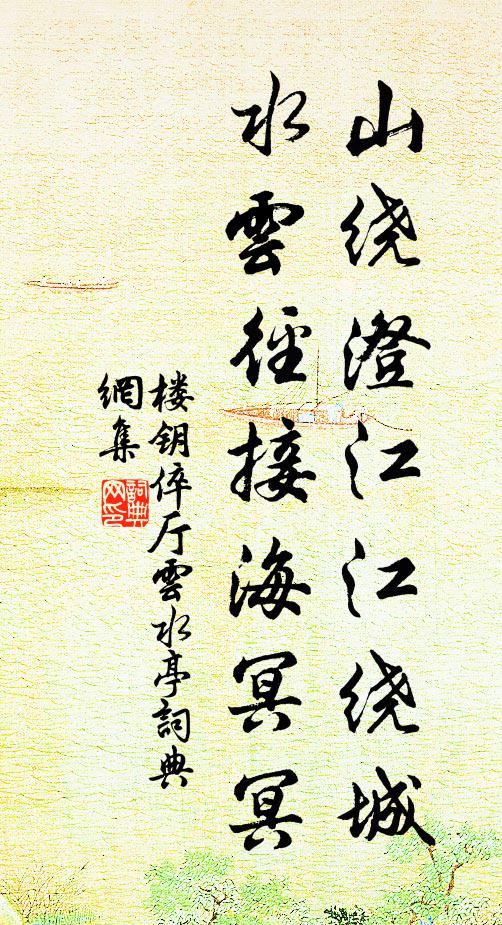 山绕澄江江绕城
水雲径接海冥冥
楼钥倅厅雲水亭詞典
網集
詞典
网印